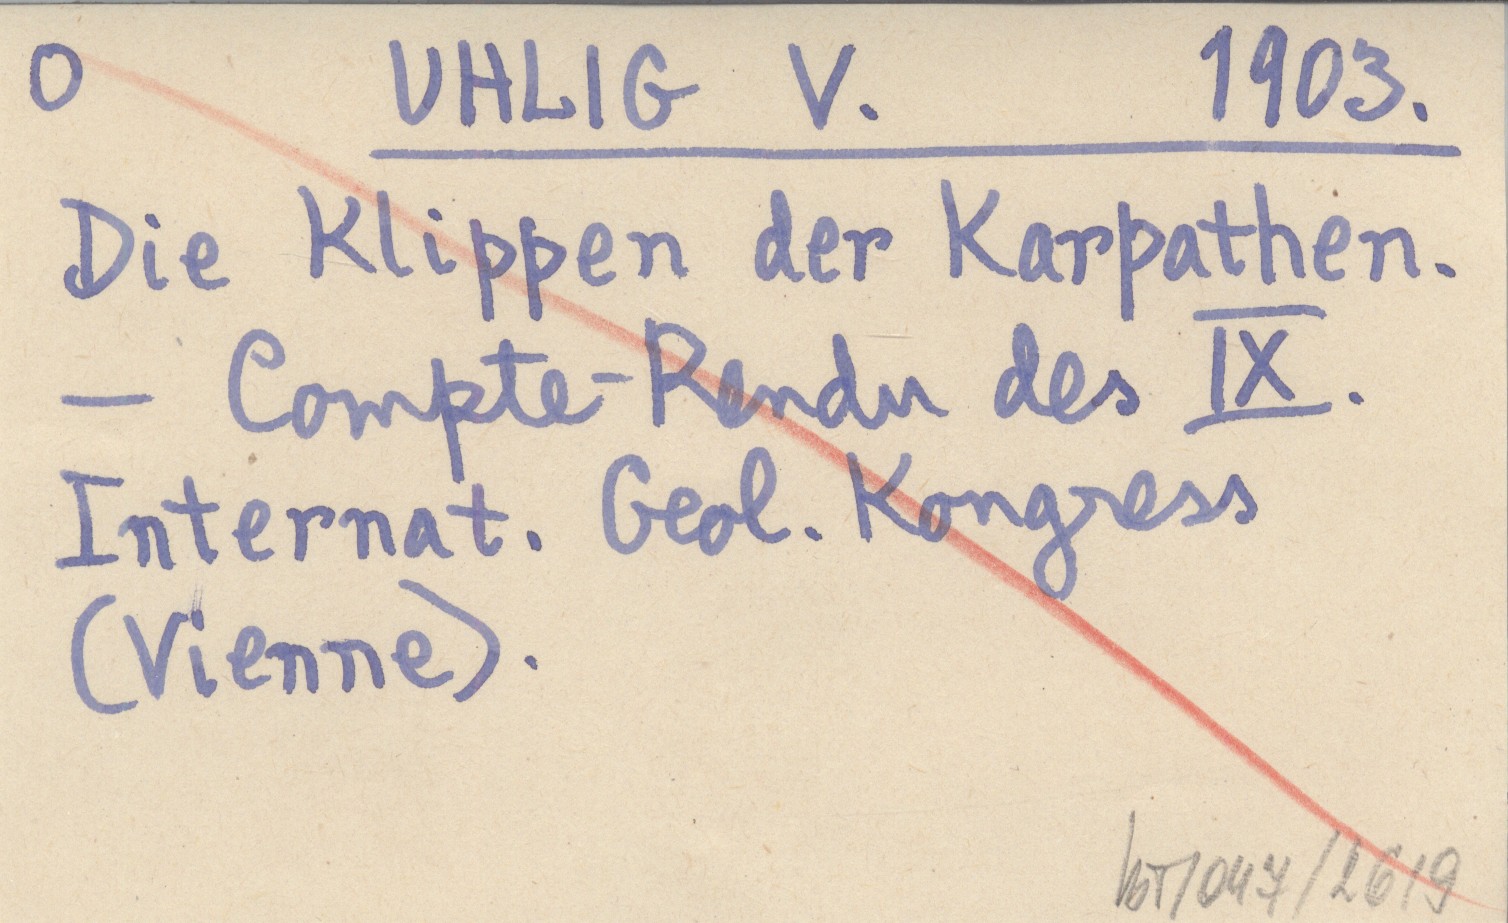 O UHLIG V. 1903.
Die Klippen der Karpathen.
— Compte-Rendu des IX.
Internat. Geol. Kongress
(Vienne).
/047/2619